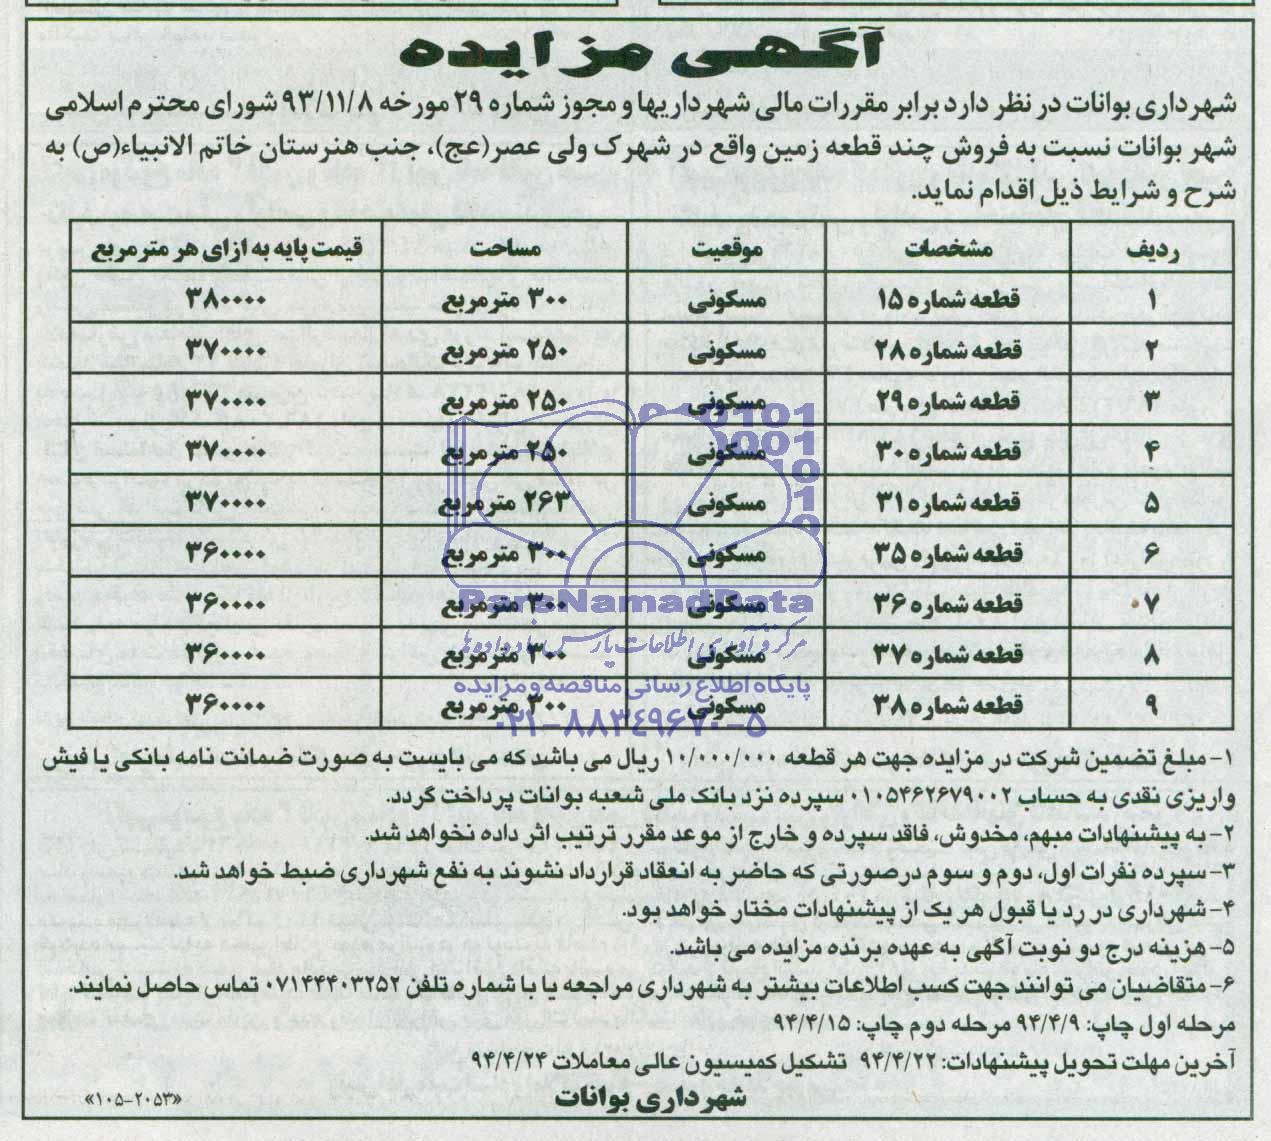 آگهی مزایده
شهرداری بوانات در نظر دارد برابر مقررات مالی شهرداریها و مجوز شماره ۲۹ مورخه ۹۳/۱۱/۸ شورای محترم اسلامی
شهر بوانات نسبت به فروش چند قطعه زمین واقع در شهرک ولی عصر(عج)، جنب هنرستان خاتم الانبیاء(ص) به
شرح و شرایط ذیل اقدام نماید.
ردیف مشخصات موقعیت مساحت قیمت پایه به ازای هر مترمربع
۱ قطعه شماره ۱۵ مسکونی ۳۰۰ مترمربع ۳۸۰۰۰۰
۲ قطعه شماره ۲۸ مسکونی ۲۵۰ مترمربع ۳۷۰۰۰۰
۳ قطعه شماره ۲۹ مسکونی ۲۵۰ مترمربع ۳۷۰۰۰۰
۴ قطعه شماره ۳۰ مسکونی ۲۵۰ مترمربع ۳۷۰۰۰۰
۵ قطعه شماره ۳۱ مسکونی ۲۶۳ مترمربع ۳۷۰۰۰۰
۶ قطعه شماره ۳۵ مسکونی ۳۰۰ مترمربع ۳۶۰۰۰۰
۷ قطعه شماره ۳۶ مسکونی ۳۰۰ مترمربع ۳۶۰۰۰۰
۸ قطعه شماره ۳۷ مسکونی ۳۰۰ مترمربع ۳۶۰۰۰۰
۹ قطعه شماره ۳۸ مسکونی ۳۰۰ مترمربع ۳۶۰۰۰۰
ParsNamadData
مرکز فرآوری اطلاعات پارس نماد داده ها
پایگاه اطلاع رسانی مناقصه و مزایده
۰۲۱-۸۸۳۴۹۶۷۰-۵
۱- مبلغ تضمین شرکت در مزایده جهت هر قطعه ۱۰/۰۰۰/۰۰۰ ریال می باشد که می بایست به صورت ضمانت نامه بانکی یا فیش
واریزی نقدی به حساب ۰۱۰۵۴۶۲۶۷۹۰۰۲ سپرده نزد بانک ملی شعبه بوانات پرداخت گردد.
۲- به پیشنهادات مبهم، مخدوش، فاقد سپرده و خارج از موعد مقرر ترتیب اثر داده نخواهد شد.
۳- سپرده نفرات اول، دوم و سوم درصورتی که حاضر به انعقاد قرارداد نشوند به نفع شهرداری ضبط خواهد شد.
۴- شهرداری در رد یا قبول هر یک از پیشنهادات مختار خواهد بود.
۵- هزینه درج دو نوبت آگهی به عهده برنده مزایده می باشد.
۶- متقاضیان می توانند جهت کسب اطلاعات بیشتر به شهرداری مراجعه یا با شماره تلفن ۰۷۱۴۴۴۰۳۲۵۲ تماس حاصل نمایند.
مرحله اول چاپ: ۹۴/۴/۹ مرحله دوم چاپ: ۹۴/۴/۱۵
آخرین مهلت تحویل پیشنهادات: ۹۴/۴/۲۲ تشکیل کمیسیون عالی معاملات ۹۴/۴/۲۴
شهرداری بوانات
«۱۰۵-۲۰۵۳»